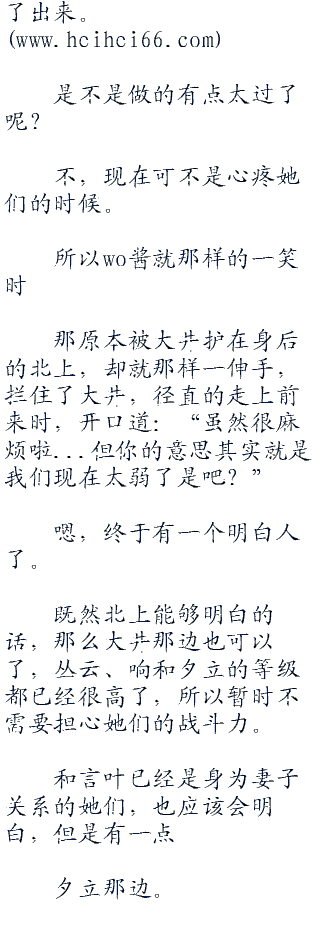 了出来。
(www.hcihci66.com)
是不是做的有点太过了
呢？
不，现在可不是心疼她
们的时候。
所以wo酱就那样的一笑
时
那原本被大井护在身后
的北上，却就那样一伸手，
拦住了大井，径直的走上前
来时，开口道：“虽然很麻
烦啦...但你的意思其实就是
我们现在太弱了是吧？”
嗯，终于有一个明白人
了。
既然北上能够明白的
话，那么大井那边也可以
了，丛云、响和夕立的等级
都已经很高了，所以暂时不
需要担心她们的战斗力。
和言叶已经是身为妻子
关系的她们，也应该会明
白，但是有一点
夕立那边。